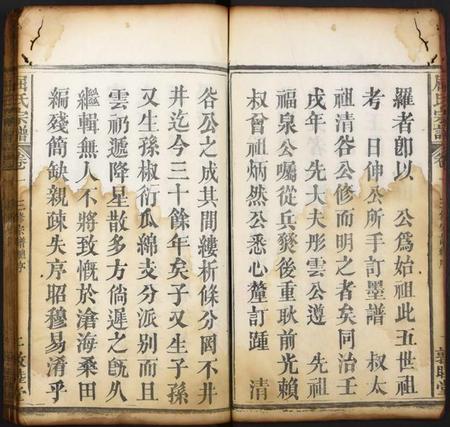 羅者卽以　公爲始祖此五世祖
考　日伸公所手訂墨譜　叔太
祖清谷公修而明之者矣同治壬
戌年　先大夫彤雲公遵　先祖
福泉公囑從兵燹後重耿前光賴
叔曾祖炳然公悉心釐訂踵　清
谷公之成其間縷析條分罔不井
井迄今三十餘年矣子又生子孫
又生孫椒衍瓜綿支分派別而且
雲礽遞降星散多方倘遲之旣久
繼輯無人不將致慨於滄海桑田
編殘簡缺親疎失序昭穆易淆乎
屈氏宗譜
卷
三修宗譜總序
二
敦睦堂